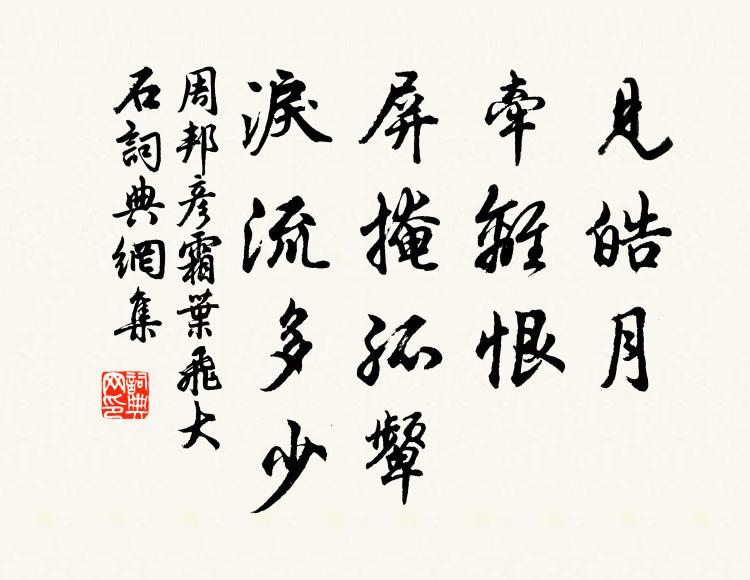 見皓月
牽離恨
屏掩孤顰
淚流多少
周邦彥霜葉飛大
石詞典網集
詞典
网印